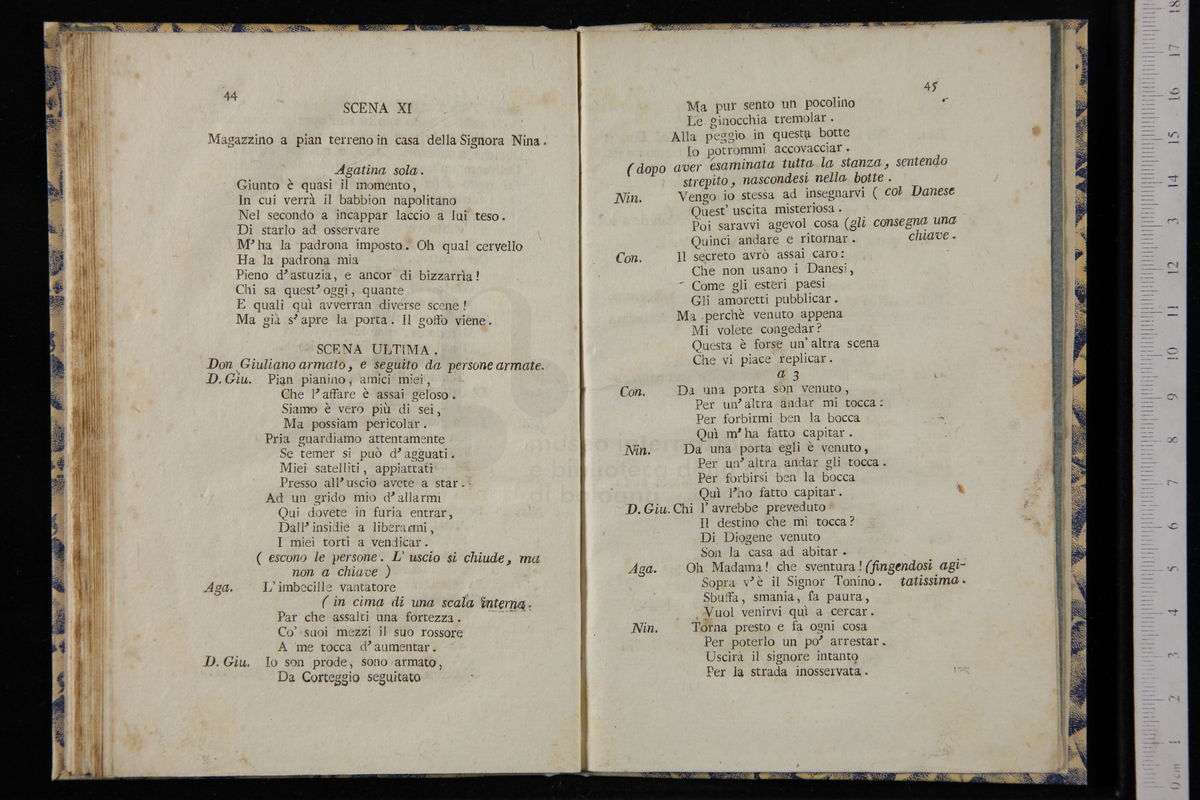 44
SCENA XI
Magazzino a pian terreno in casa della Signora Nina.
Agatina sola.
Giunto è quasi il momento,
In cui verrà il babbion napolitano
Nel secondo a incappar laccio a lui teso.
Di starlo ad osservare
M'ha la padrona imposto. Oh qual cervello
Ha la padrona mia
Pieno d'astuzia, e ancor di bizzarrìa!
Chi sa quest'oggi, quante
E quali quì avverran diverse scene!
Ma già s'apre la porta. Il goffo viene.
SCENA ULTIMA.
Don Giuliano armato, e seguito da persone armate.
D. Giu. Pian pianino, amici miei,
Che l'affare è assai geloso.
Siamo è vero più di sei,
Ma possiam pericolar.
Pria guardiamo attentamente
Se temer si può d'agguati.
Miei satelliti, appiattati
Presso all'uscio avete a star.
Ad un grido mio d'allarmi
Qui dovete in furia entrar,
Dall'insidie a liberarmi,
I miei torti a vendicar.
( escono le persone. L'uscio si chiude, ma
non a chiave )
Aga. L'imbecille vantatore
( in cima di una scala interna.
Par che assalti una fortezza.
Co' suoi mezzi il suo rossore
A me tocca d'aumentar.
D. Giu. Io son prode, sono armato,
Da Corteggio seguitato
45
Ma pur sento un pocolino
Le ginocchia tremolar.
Alla peggio in questa botte
Io potrommi accovacciar.
( dopo aver esaminata tutta la stanza, sentendo
strepito, nascondesi nella botte.
Nin. Vengo io stessa ad insegnarvi ( col Danese
Quest' uscita misteriosa.
Poi saravvi agevol cosa (gli consegna una
Quinci andare e ritornar. chiave.
Con. Il secreto avrò assai caro:
Che non usano i Danesi,
Come gli esteri paesi
Gli amoretti pubblicar.
Ma perchè venuto appena
Mi volete congedar?
Questa è forse un' altra scena
Che vi piace replicar.
a 3
Con. Da una porta son venuto,
Per un'altra andar mi tocca:
Per forbirmi ben la bocca
Quì m'ha fatto capitar.
Nin. Da una porta egli è venuto,
Per un'altra andar gli tocca.
Per forbirsi ben la bocca
Quì l'ho fatto capitar.
D. Giu. Chi l'avrebbe preveduto
Il destino che mi tocca?
Di Diogene venuto
Son la casa ad abitar.
Aga. Oh Madama! che sventura! (fingendosi agi-
Sopra v'è il Signor Tonino. tatissima.
Sbuffa, smania, fa paura,
Vuol venirvi quì a cercar.
Nin. Torna presto e fa ogni cosa
Per poterlo un po' arrestar.
Uscirà il signore intanto
Per la strada inosservata.